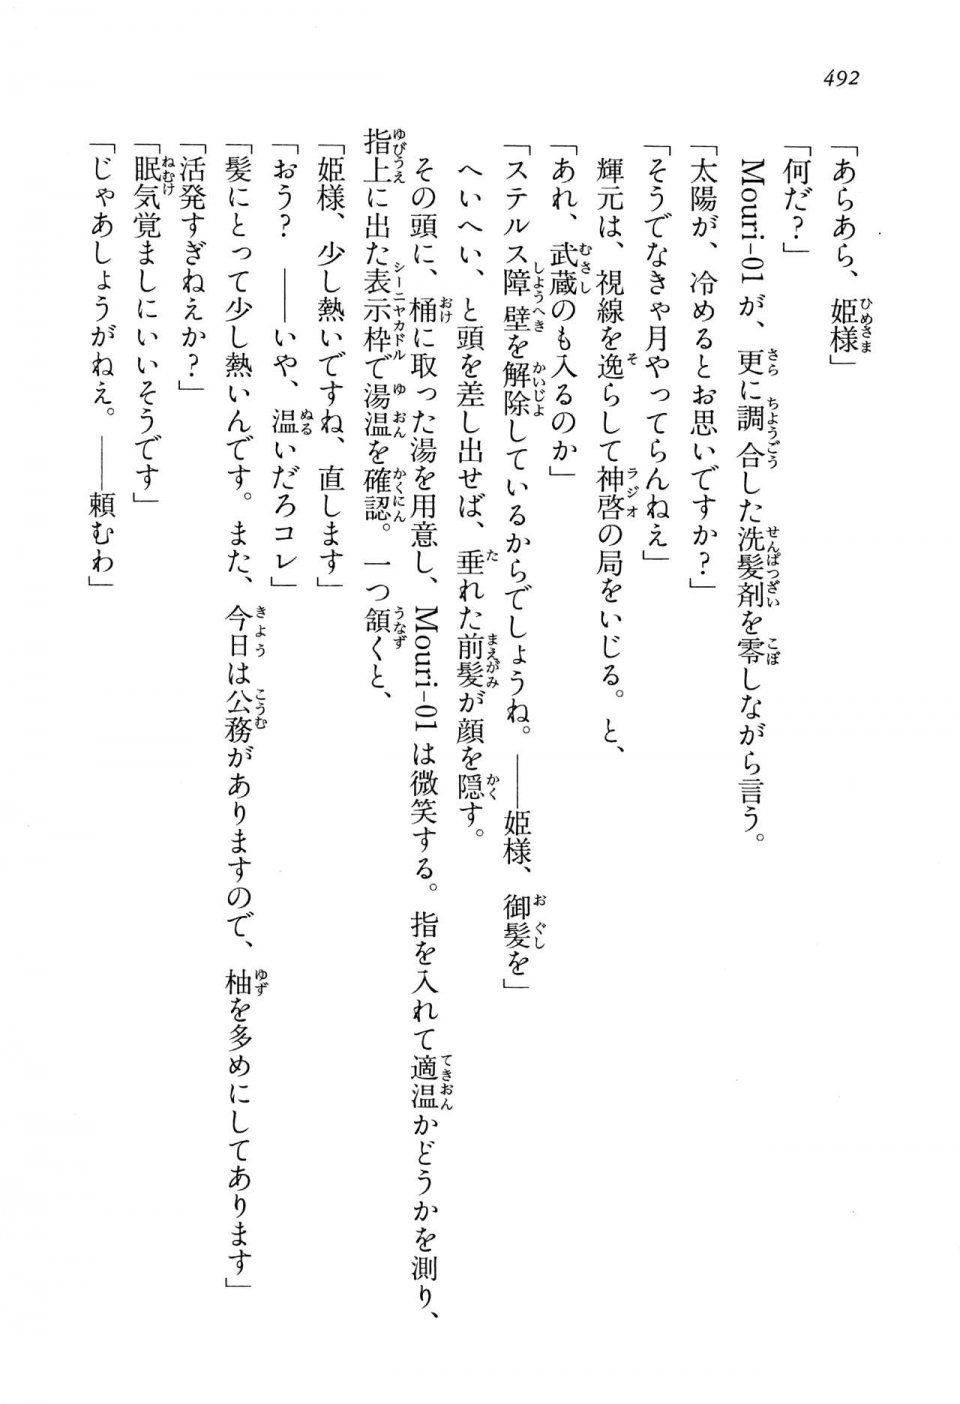 492
「あらあら、姫様」
「何だ？」
Mouri-01が、更に調合した洗髪剤を零しながら言う。
「太陽が、冷めるとお思いですか？」
「そうでなきゃ月やってらんねえ」
輝元は、視線を逸らして神啓の局をいじる。と、
「あれ、武蔵のも入るのか」
「ステルス障壁を解除しているからでしょうね。――姫様、御髪を」
へいへい、と頭を差し出せば、垂れた前髪が顔を隠す。
その頭に、桶に取った湯を用意し、Mouri-01は微笑する。指を入れて適温かどうかを測り、
指上に出た表示枠で湯温を確認。一つ頷くと、
「姫様、少し熱いですね、直します」
「おう？　――いや、温いだろコレ」
「髪にとって少し熱いんです。また、今日は公務がありますので、柚を多めにしてあります」
「活発すぎねえか？」
「眠気覚ましにいいそうです」
「じゃあしょうがねえ。――頼むわ」